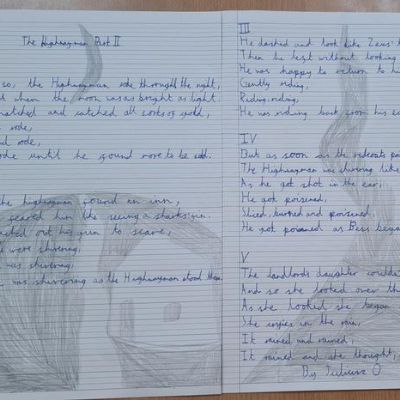 The Highwayman Part II
so, the Highwayman rode through the night,
when the moon was as bright as light
snatched and snatched all sorts of gold,
rode,
rode,
rode until he found more to be sold.
the highwayman found an inn,
scared him like seeing a sharks fin.
his gun to scare,
were shivering,
was shivering,
was shivering as the Highwayman stood there.
III
He dashed and look like Zeus'
Then he left without looking
He was happy to return to his
Gently riding,
Riding, riding,
He was riding back soon his
IV
But as soon as the redcoats
The Highwayman was shivering like
As he got shot in the ear,
He got poisoned,
Sliced, burned and poisoned,
He got poisoned as Bess began
V
The landlords daughter couldn't
And so she looked over the
As she looked she began
She in the rain,
It rained and rained,
It rained and she thought,
By Juliusz O